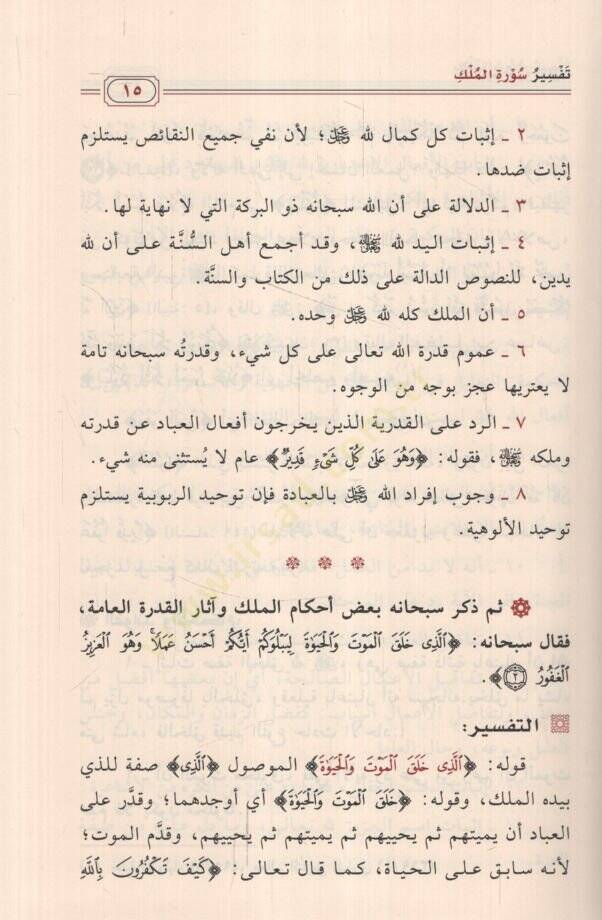 تَفْسِيرُ سُورَةِ المُلْكِ
١٥
٢ ـ إثبات كل كمال لله ﷿؛ لأن نفي جميع النقائص يستلزم
إثبات ضدها.
٣ ـ الدلالة على أن الله سبحانه ذو البركة التي لا نهاية لها.
٤ ـ إثبات اليد لله ﷿، وقد أجمع أهل السُّنَّة على أن لله
يدين، للنصوص الدالة على ذلك من الكتاب والسنَّة.
٥ ـ أن الملك كله لله ﷿ وحده.
٦ ـ عموم قدرة الله تعالى على كل شيء، وقدرتُه سبحانه تامة
لا يعتريها عجز بوجه من الوجوه.
٧ ـ الرد على القدرية الذين يخرجون أفعال العباد عن قدرته
وملكه ﷾، فقوله: ﴿وَهُوَ عَلَىٰ كُلِّ شَيْءٍ قَدِيرٌ﴾ عام لا يُستثنى منه شيء.
٨ ـ وجوب إفراد الله ﷿ بالعبادة فإن توحيد الربوبية يستلزم
توحيد الألوهية.
ثم ذكر سبحانه بعض أحكام الملك وآثار القدرة العامة،
فقال سبحانه: ﴿الَّذِي خَلَقَ الْمَوْتَ وَالْحَيَوٰةَ لِيَبْلُوَكُمْ أَيُّكُمْ أَحْسَنُ عَمَلًا ۚ وَهُوَ الْعَزِيزُ
الْغَفُورُ ۝٢﴾.
التفسير:
قوله: ﴿الَّذِي خَلَقَ الْمَوْتَ وَالْحَيَوٰةَ﴾ الموصول ﴿الَّذِي﴾ صفة للذي
بيده الملك، وقوله: ﴿خَلَقَ الْمَوْتَ وَالْحَيَوٰةَ﴾ أي أوجدهما؛ وقدَّر على
العباد أن يميتهم ثم يحييهم ثم يميتهم ثم يحييهم، وقدَّم الموت؛
لأنه سابق على الحياة، كما قال تعالى: ﴿كَيْفَ تَكْفُرُونَ بِاللَّهِ